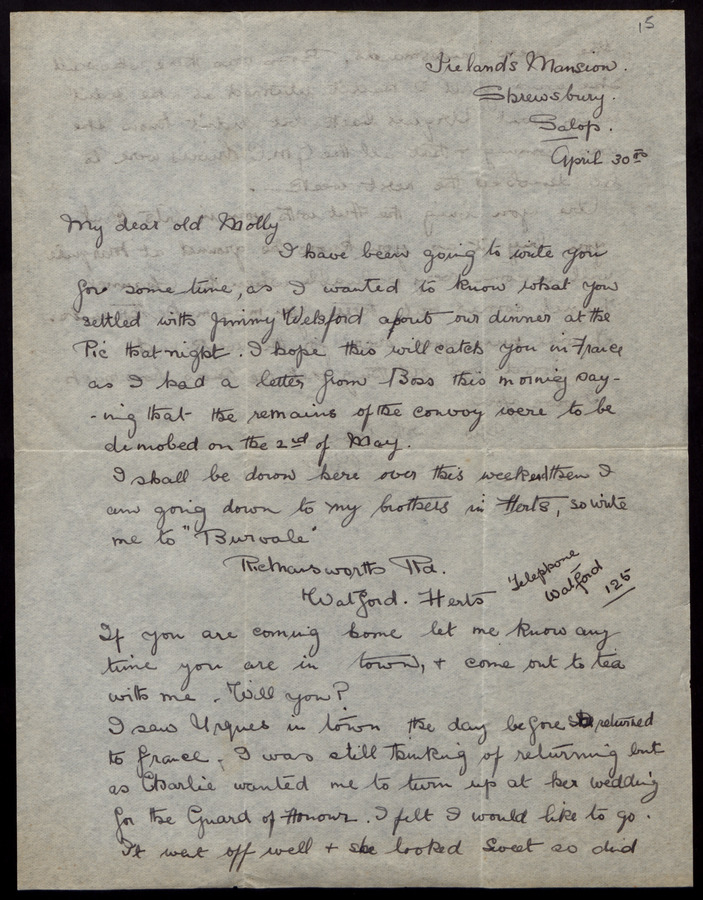 15
Ireland's Mansion.
Shrewsbury.
Salop.
April 30th
My dear old Molly
I have been going to write you
for some time, as I wanted to know what you
settled with Jimmy Welsford about our dinner at the
Pic that night. I hope this will catch you in France
as I had a letter from Boss this morning say-
-ing that the remains of the convoy were to be
demobed on the 2nd of May.
I shall be down here over this weekend then I
am going down to my brothers in Herts, so write
me to "Burvale"
Rickmansworth Rd.
Watford. Herts
Telephone
Watford
125
If you are coming home let me know any
time you are in town, + come out to tea
with me. Will you?
I saw Urques in town the day before returned
to France. I was still thinking of returning but
as Charlie wanted me to turn up at her wedding
for the Guard of Honour. I felt I would like to go.
It went off well + she looked sweet so did